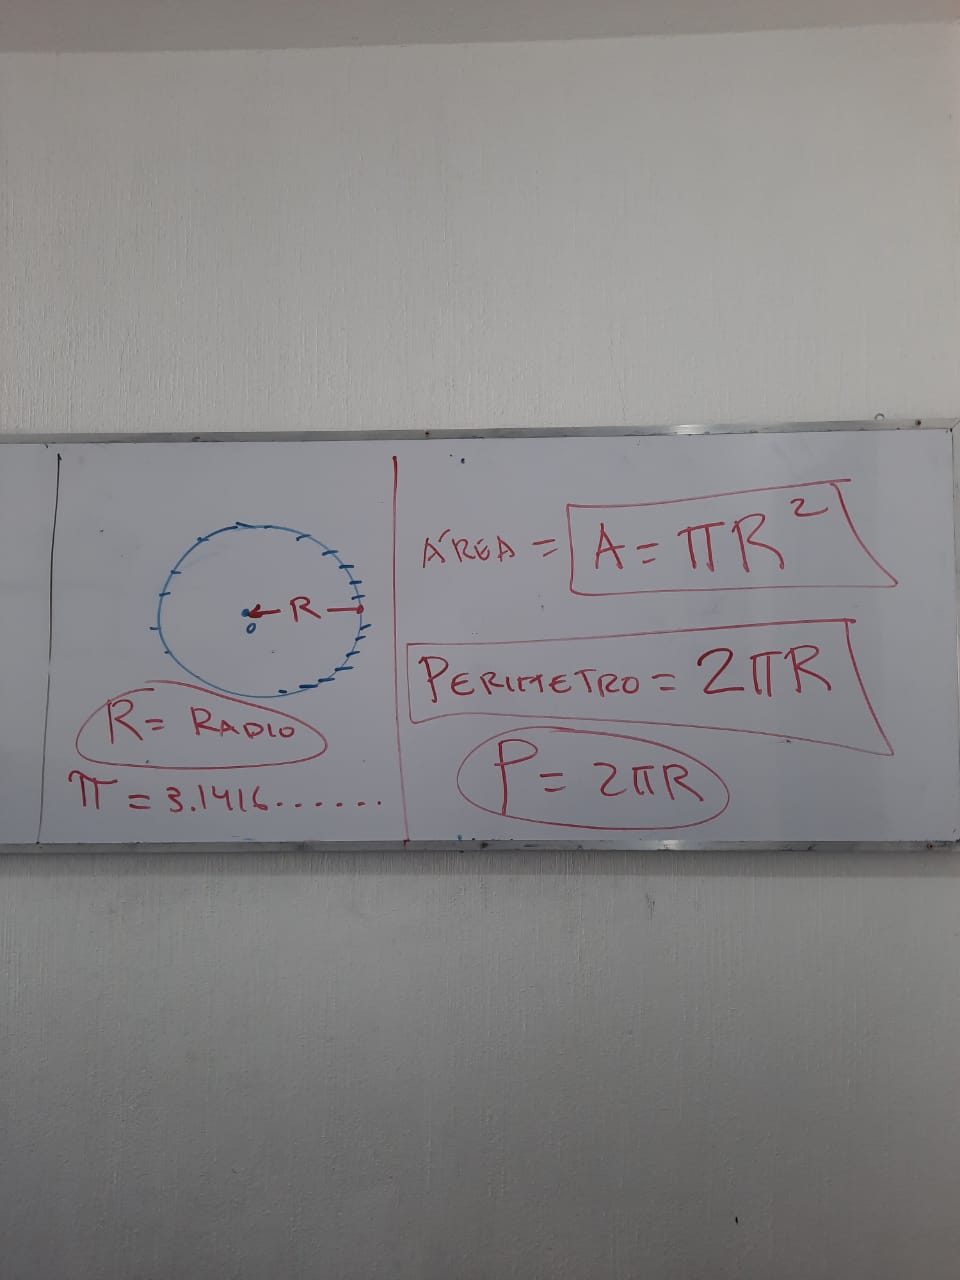 R
o
R = RADIO
π = 3.1416.......
ÁREA = A = πR²
PERIMETRO = 2πR
P = 2πR